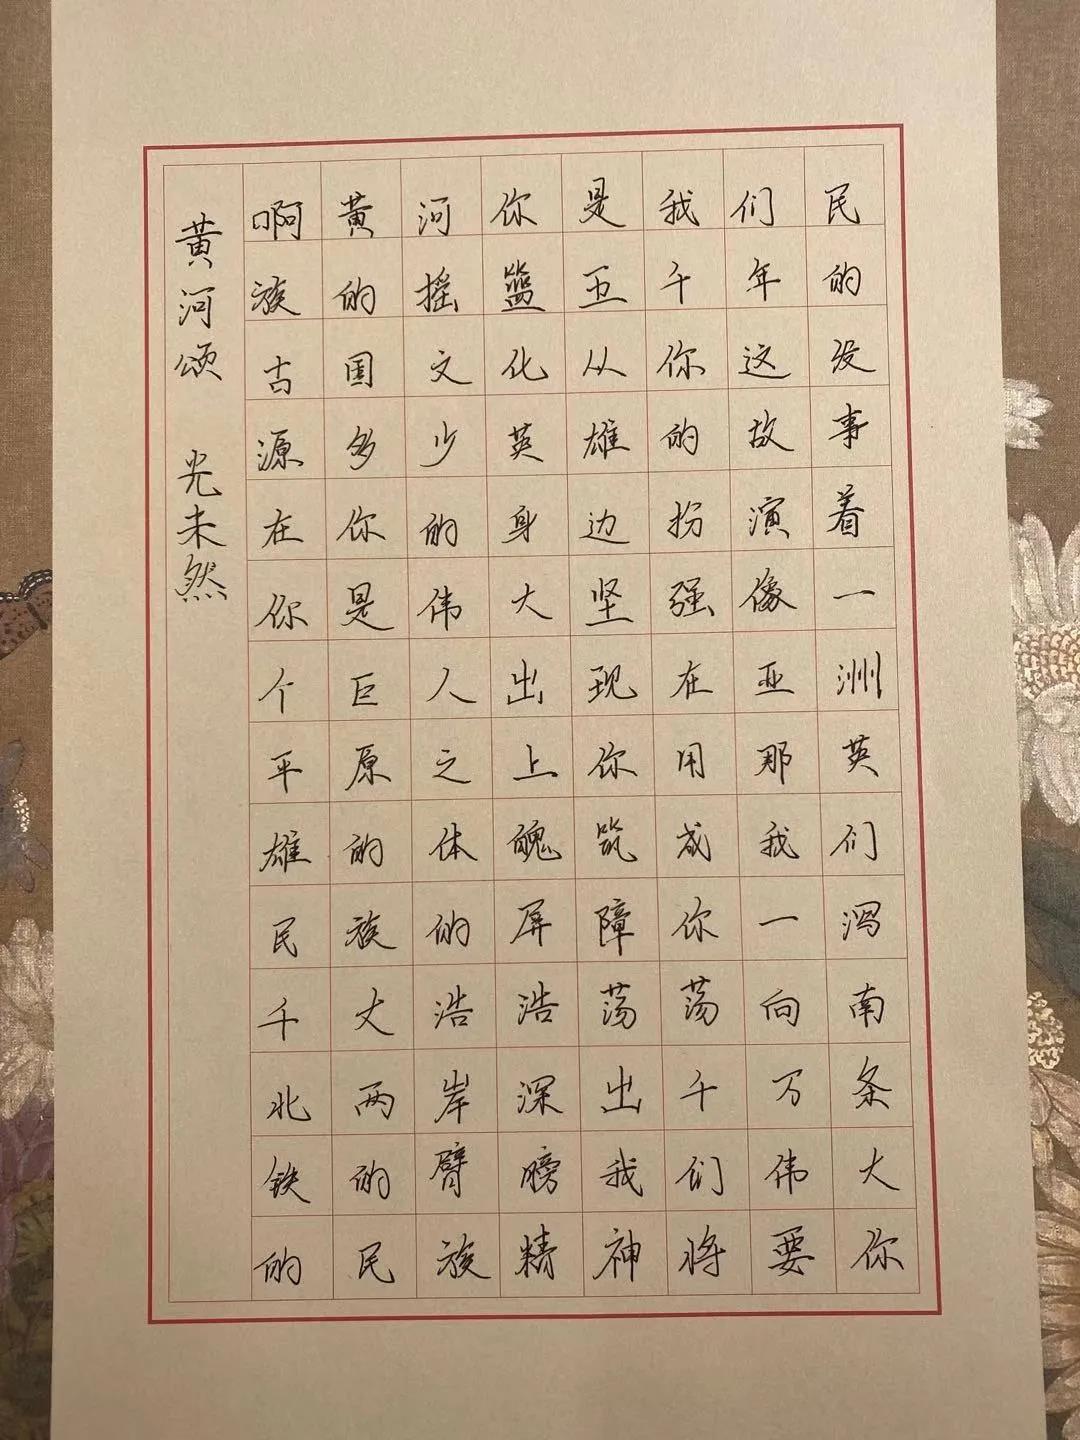 黄河颂 光未然
啊黄河你是我们民
族的摇篮五千年的
古国文化从你这发
源多少英雄的故事
在你的身边扮演着
你是伟大坚强像一
个巨人出现在亚洲
平原之上你用那英
雄的体魄筑成我们
民族的屏障你一泻
千丈浩浩荡荡向南
北两岸深出千万条
铁的臂膀我们伟大
的民族精神将要你